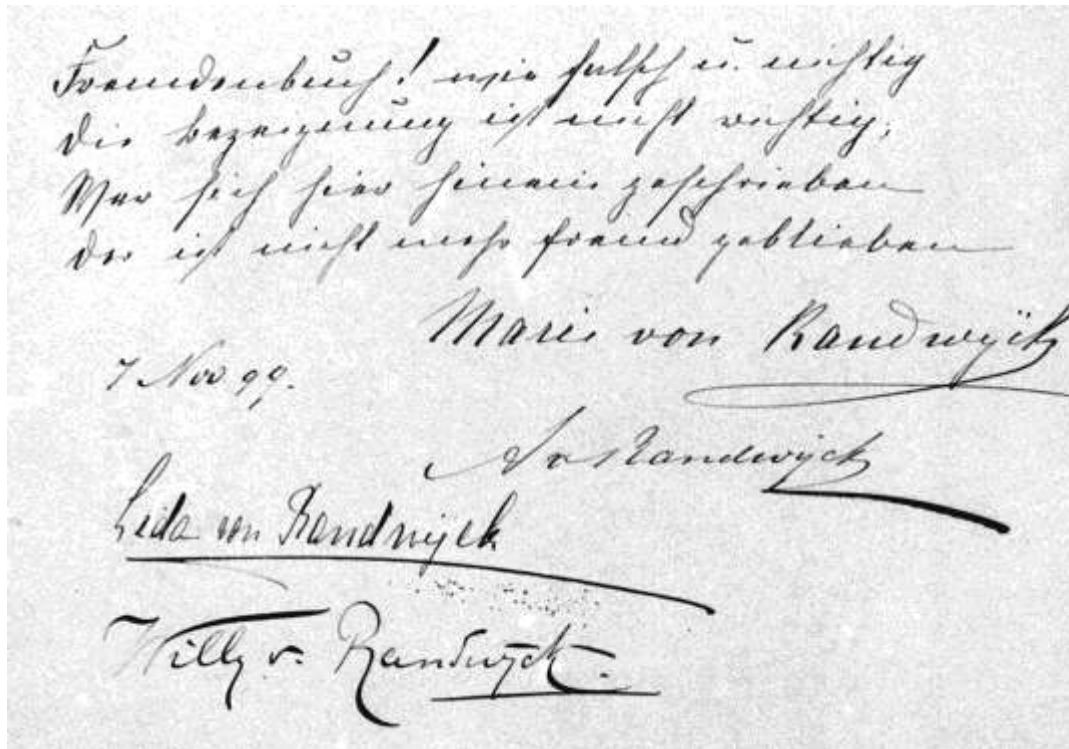 Fremdenbuch! wie falsch u. nichtig
die Bezeignung ist nicht richtig;
Wer sich hier hinein geschrieben
der ist nicht mehr fremd geblieben
Marie von Randwÿck
7 Nov 99.
v Randwÿck
Leda von Randwÿck
Willy v. Randwÿck.